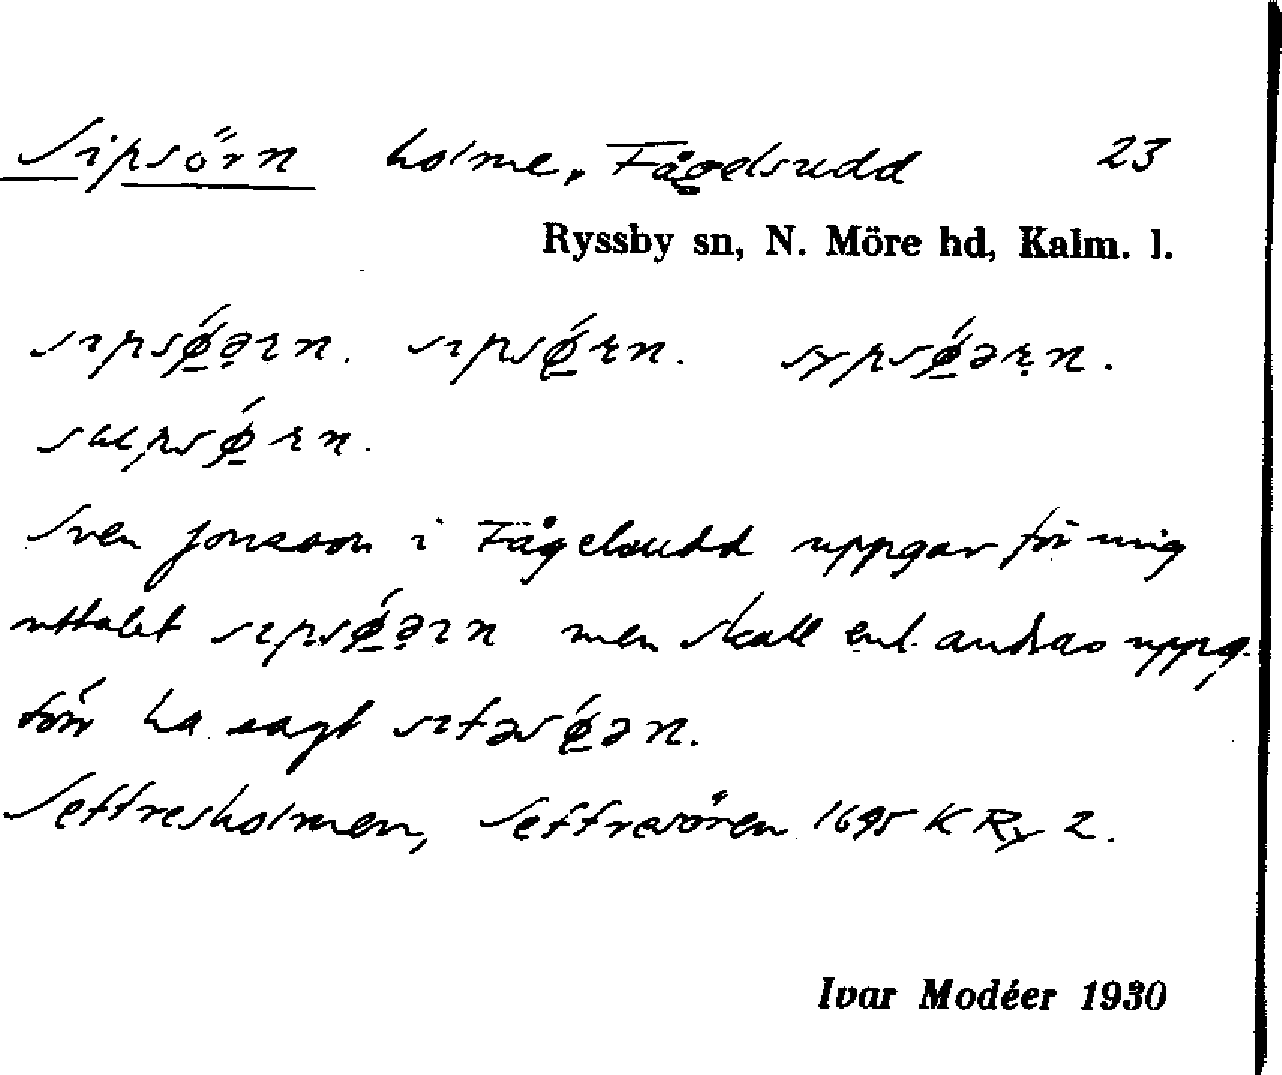 Sipsörn holme, Fågelsudd 23
Ryssby sn, N. Möre hd, Kalm. l.
sɪpsǿ̲ərn. sɪpsǿ̲rn. sypsǿ̲ərn.
supsǿ̲rn.
Sven Jonsson i Fågelsudd uppgav för mig
uttalet sɪpsǿ̲ərn men skall enl. andras uppg.
förr ha sagt sɪfəsǿ̲ən.
Seffresholmen, Seffresören 1695 K Ry 2.
Ivar Modéer 1930